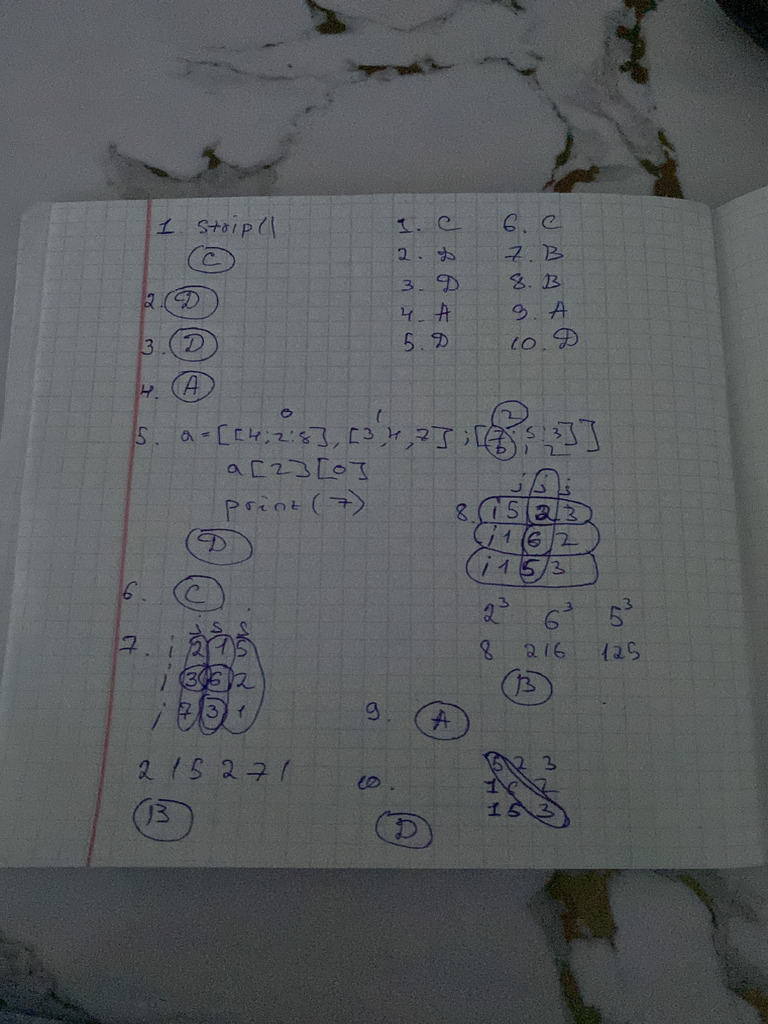 1 strip()
C
2. D
3. D
4. A
1. C 6. C
2. D 7. B
3. D 8. B
4. A 9. A
5. D 10. D
0 1 2
5. a=[[4;2;8],[3,4,7];[7;5;3]]
a[2][0]
print(7)
D
6. C
7. i 2 1 5
i 3 6 2
i 7 3 1
2 1 5 2 7 1
B
j j j
8. i 5 2 3
i 1 6 2
i 1 5 3
2³ 6³ 5³
8 216 125
B
9. A
10. 5 2 3
1 6 2
1 5 3
D